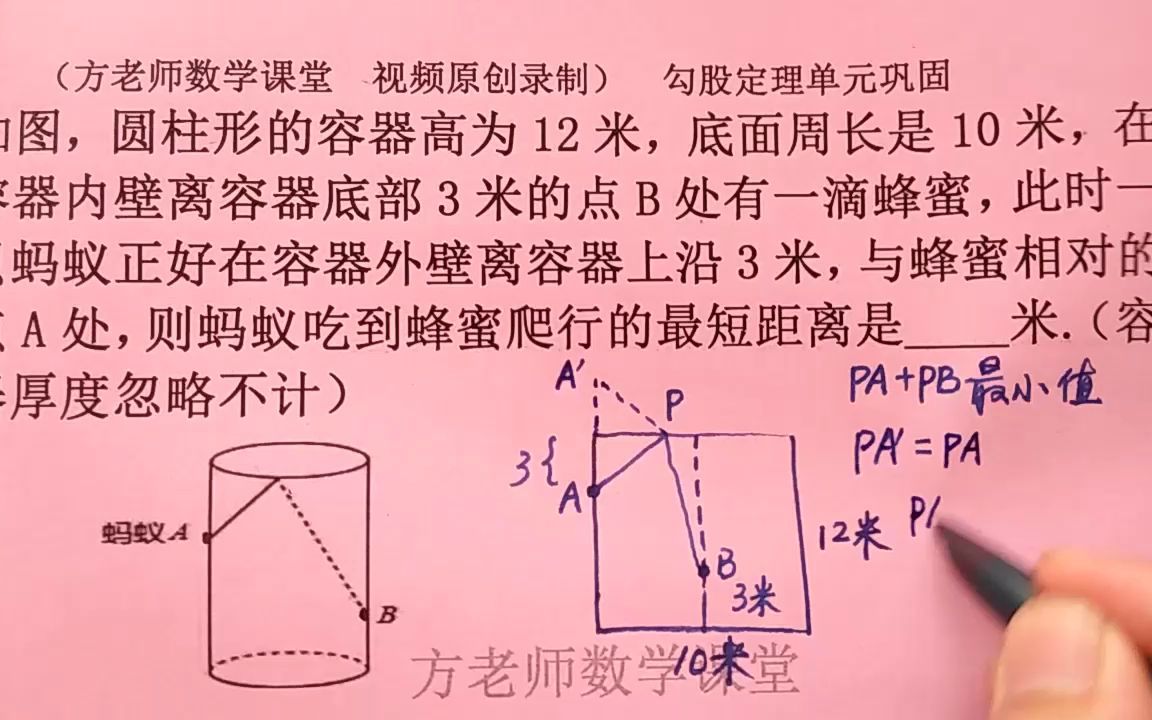 （方老师数学课堂 视频原创录制） 勾股定理单元巩固
图，圆柱形的容器高为 12 米，底面周长是 10 米，在
器内壁离容器底部 3 米的点 B 处有一滴蜂蜜，此时一
蚂蚁正好在容器外壁离容器上沿 3 米，与蜂蜜相对的
A 处，则蚂蚁吃到蜂蜜爬行的最短距离是____米.（容
厚度忽略不计）
A′
P
PA+PB最小值
3{
PA′=PA
A
12米
P
蚂蚁A
B
3米
B
10米
方老师数学课堂